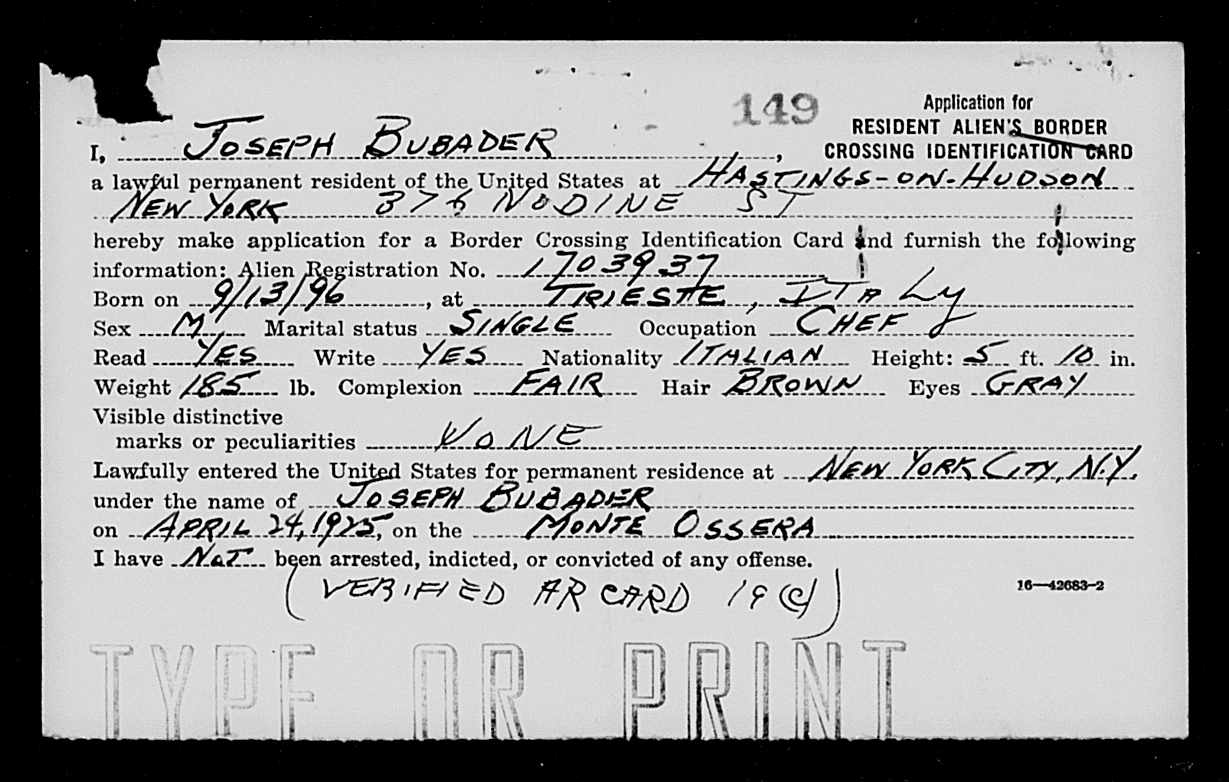 149
Application for
RESIDENT ALIEN'S BORDER
CROSSING IDENTIFICATION CARD
I, JOSEPH BUBADER,
a lawful permanent resident of the United States at HASTINGS-ON-HUDSON
NEW YORK 376 NODINE ST
hereby make application for a Border Crossing Identification Card and furnish the following
information: Alien Registration No. 1703937
Born on 9/13/96, at TRIESTE, ITALY
Sex M, Marital status SINGLE Occupation CHEF
Read YES Write YES Nationality ITALIAN Height: 5 ft. 10 in.
Weight 185 lb. Complexion FAIR Hair BROWN Eyes GRAY
Visible distinctive
marks or peculiarities NONE
Lawfully entered the United States for permanent residence at NEW YORK CITY, N.Y.
under the name of JOSEPH BUBADER
on APRIL 24, 1925, on the MONTE OSSERA
I have NOT been arrested, indicted, or convicted of any offense.
(VERIFIED AR CARD 19(c))
16—42683-2
TYPE OR PRINT